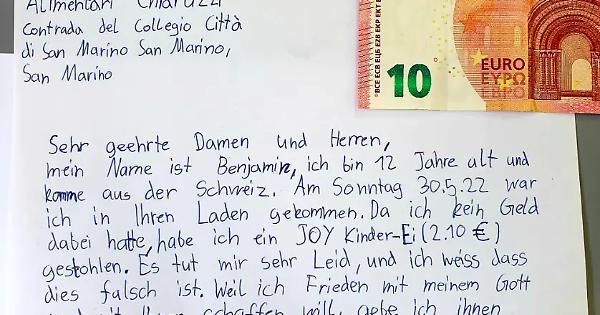 Alimentari Chiaruzzi
Contrada del Collegio Città
di San Marino San Marino,
San Marino
BCE ECB ЕЦБ EZB EKP EKT
10
EURO
ΕΥΡΩ
ЕВРО
Sehr geehrte Damen und Herren,
mein Name ist Benjamin, ich bin 12 Jahre alt und
komme aus der Schweiz. Am Sonntag 30.5.22 war
ich in Ihren Laden gekommen. Da ich kein Geld
dabei hatte, habe ich ein JOY Kinder-Ei (2.10 €)
gestohlen. Es tut mir sehr Leid, und ich weiss dass
dies falsch ist. Weil ich Frieden mit meinem Gott
schaffen will, gebe ich ihnen